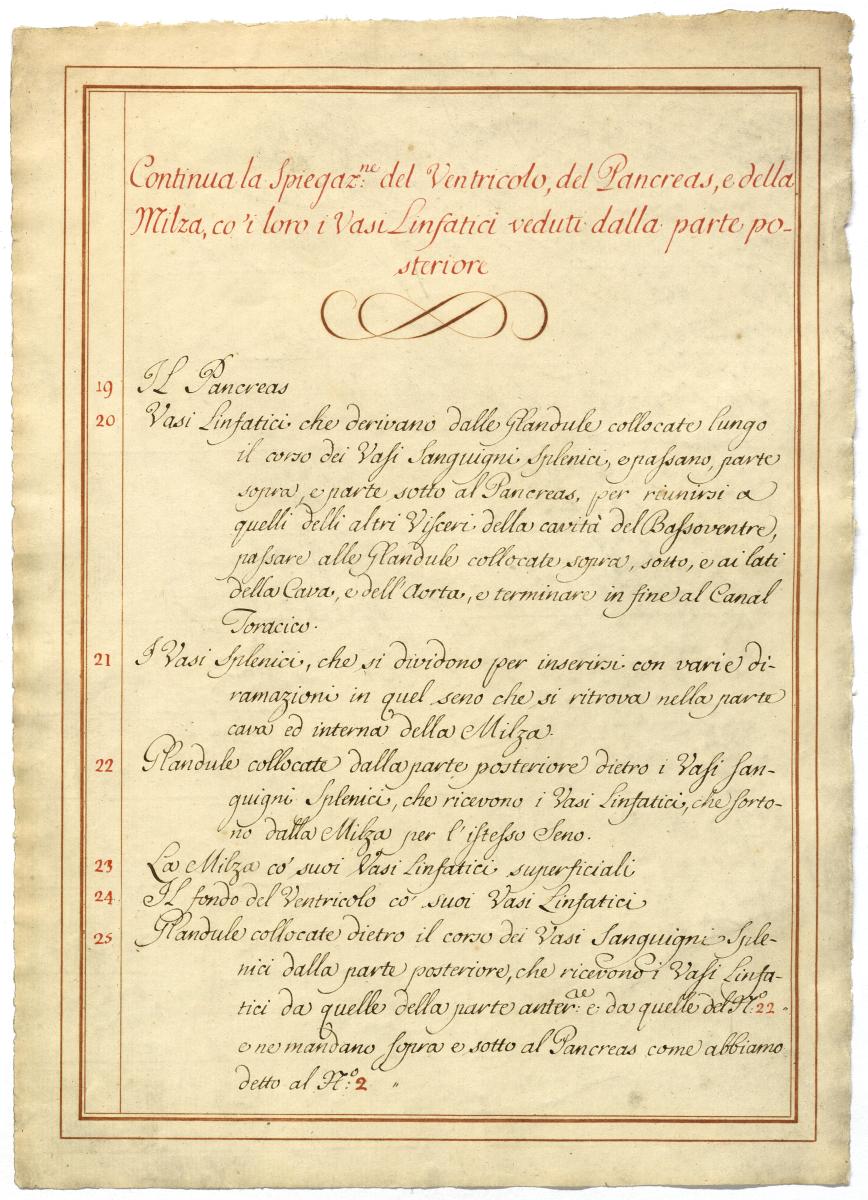 Continua la Spiegaz:ne del Ventricolo, del Pancreas, e della
Milza, co'i loro i Vasi Linfatici veduti dalla parte po-
steriore
19 Il Pancreas
20 Vasi Linfatici che derivano dalle Glandule collocate lungo
il corso dei Vasi Sanguigni Splenici, e passano, parte
sopra, e parte sotto al Pancreas, per riunirsi a
quelli delli altri Visceri della cavità del Bassoventre,
passare alle Glandule collocate sopra, sotto, e ai lati
della Cava, e dell'Aorta, e terminare in fine al Canal
Toracico.
21 I Vasi Splenici, che si dividono per inserirsi con varie di-
ramazioni in quel seno che si ritrova nella parte
cava ed interna della Milza.
22 Glandule collocate dalla parte posteriore dietro i Vasi San-
guigni Splenici, che ricevono i Vasi Linfatici, che sorto-
no dalla Milza per l'istesso Seno.
23 La Milza co' suoi Vasi Linfatici superficiali
24 Il fondo del Ventricolo co' suoi Vasi Linfatici
25 Glandule collocate dietro il corso dei Vasi Sanguigni Sple-
nici dalla parte posteriore, che ricevono i Vasi Linfa-
tici da quelle della parte anter:re e da quelle del N:o 22 "
e ne mandano sopra e sotto al Pancreas come abbiamo
detto al N:o 2 "